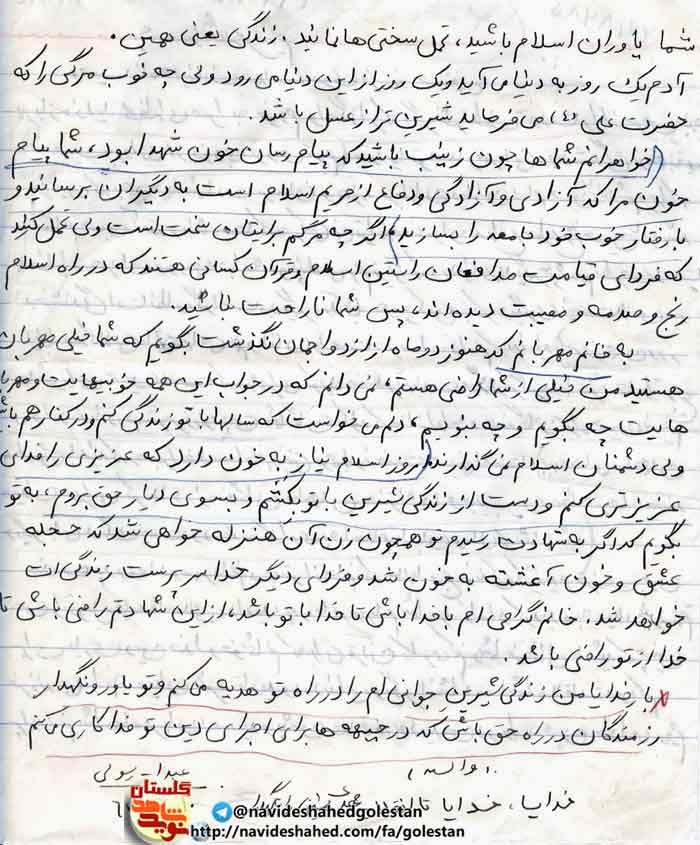 شما یاوران اسلام باشید، تحمل سختی ها نمائید. زندگی یعنی همین.
آدم یک روز به دنیا می آید و یک روز از این دنیا می رود ولی چه خوب مرگی را که
حضرت علی (ع) می فرماید شیرین تر از عسل باشد.
خواهرانم شما ها چون زینب باشید که پیام رسان خون شهدا بود، شما پیام
خون مرا که آزادی و آزادگی و دفاع از حریم اسلام است به دیگران برسانید و
با رفتار خوب خود جامعه را بسازید، اگر چه مرگم برایتان سخت است ولی تحمل کنید
که فردای قیامت مدافعان راستین اسلام و قرآن کسانی هستند که در راه اسلام
رنج و صدمه و مصیبت دیده اند، پس شما ناراحت نباشید.
به خانم مهربانم که هنوز دو ماه از ازدواجمان نگذشت بگویم که شما خیلی مهربان
هستید من خیلی از شما راضی هستم، نمی دانم که در جواب این همه خوبیهایت و مهربا
هایت چه بگویم و چه بنویسم، دلم می خواست که سالها با تو زندگی کنم و در کنار هم باش
ولی دشمنان اسلام نمی گذارند، امروز اسلام نیاز به خون دارد که عزیزی را فدای
عزیزتری کنم و دست از زندگی شیرین با تو بکشم و بسوی دیار حق بروم، به تو
بگویم که اگر به شهادت رسیدم تو همچون زن آن حنزله خواهی شد که حجله
عشق و خون آغشته به خون شد و فردای دیگر خدا سرپرست زندگی ات
خواهد شد. خانم گرامی ام با خدا باش تا خدا با تو باشد، از این شهادتم راضی باش تا
خدا از تو راضی باشد.
بار خدایا من زندگی شیرین جوانی ام را در راه تو هدیه می کنم و تو یاور و نگهدار
رزمندگان در راه حق باش که در جبهه ها برای اجرای دین تو فداکاری می کنم
والسلام
خدایا، خدایا تا انقلاب مهدی
گلستان
نوید شاهد
@navideshahedgolestan
http://navideshahed.com/fa/golestan